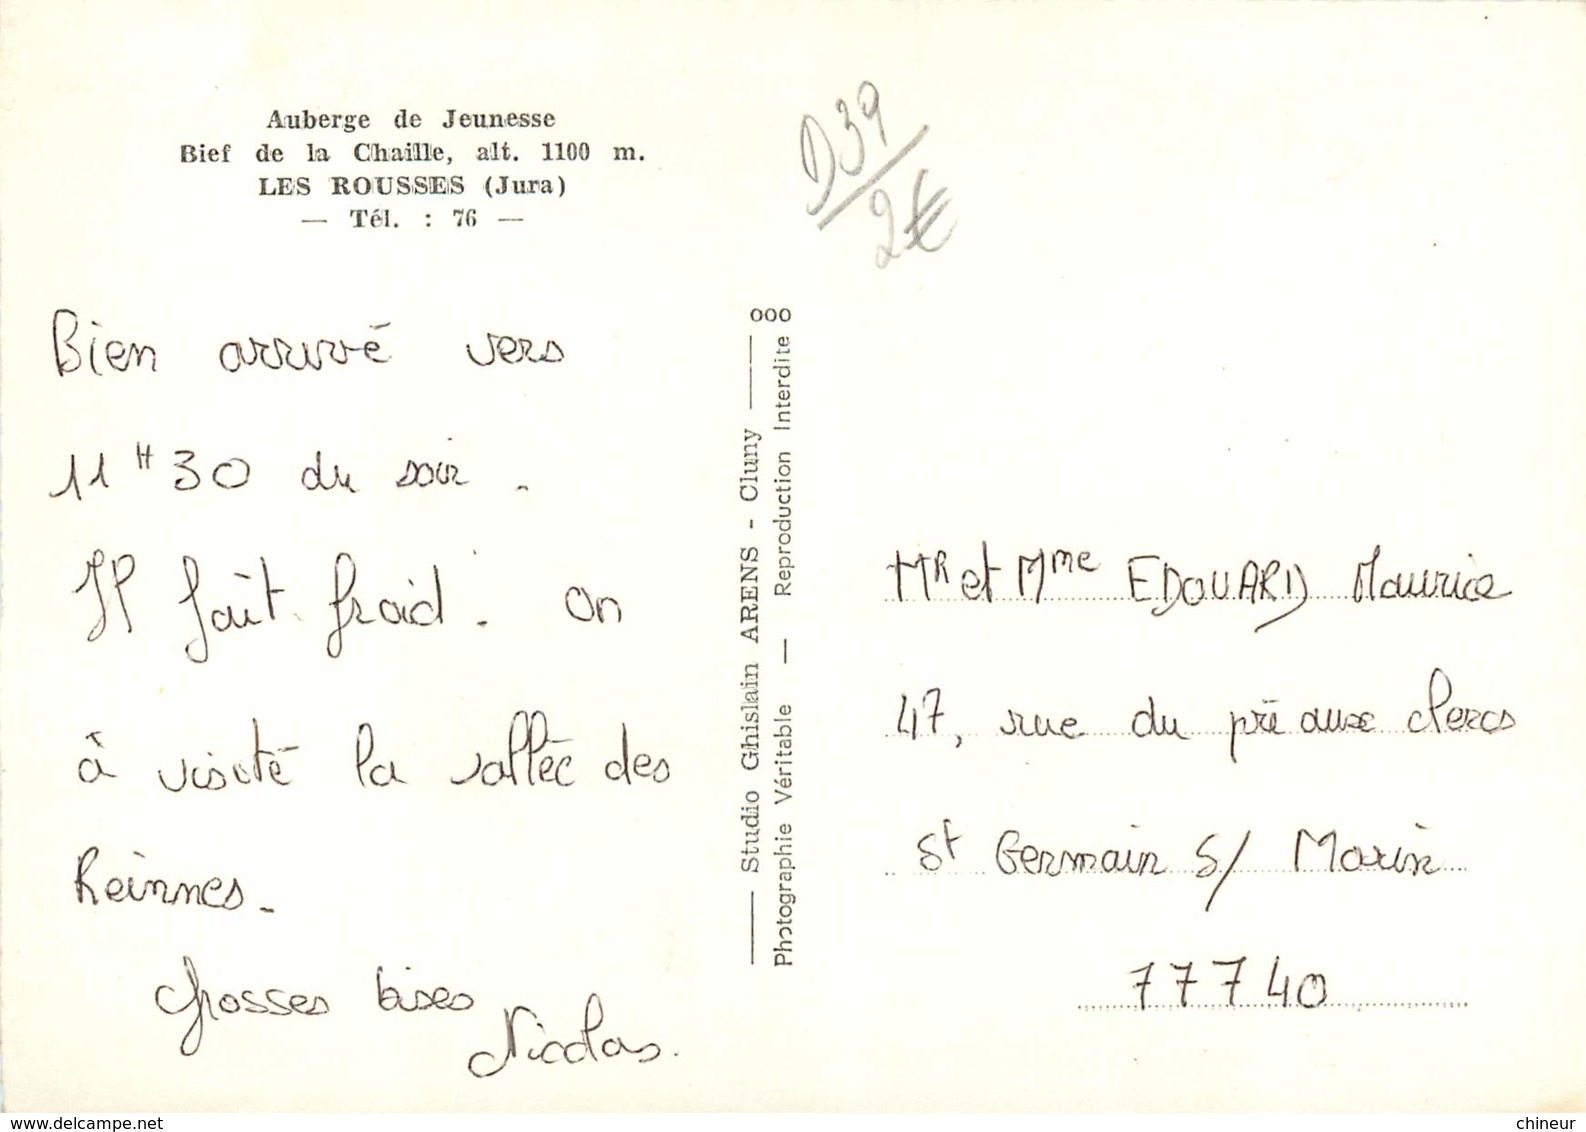 Auberge de Jeunesse
Bief de la Chaille, alt. 1100 m.
LES ROUSSES (Jura)
— Tél. : 76 —
D39/2€
Bien arrivé vers
11H30 du soir.
Il fait froid. on
à visité la vallée des
Reinnes.
Grosses bises
Nicolas.
Studio Ghislain ARENS - Cluny — 000
Photographie Véritable — Reproduction Interdite
Mr et Mme EDOUARD Maurice
47, rue du pré aux clercs
St Germain S/ Morin
77740
www.delcampe.net
chineur